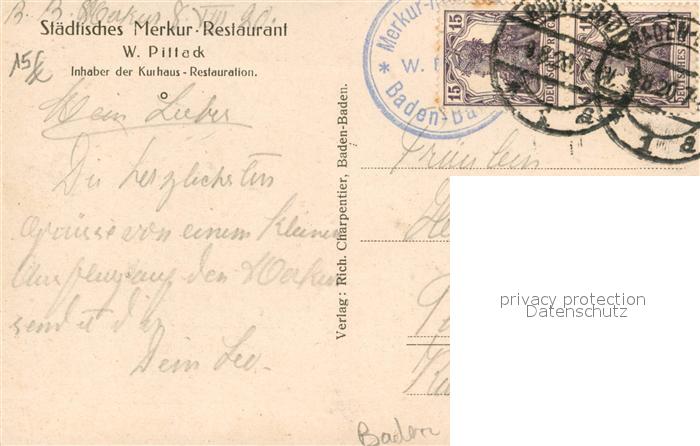 B. B. Merkur 8. VIII 20.
Städtisches Merkur-Restaurant
W. Pittack
Inhaber der Kurhaus-Restauration.
15
Mein Lieber
Die herzlichsten
Grüsse von einem kleinen
Ausflug auf den Merkur
sendet dir
Dein Leo.
Verlag: Rich. Charpentier, Baden-Baden.
Merkur-
W. P
Baden-Ba
15
15
DEUTSCHES REICH
BADEN-BADEN
1 a
BADEN-
1 a
Fräulein
privacy protection
Datenschutz
Baden